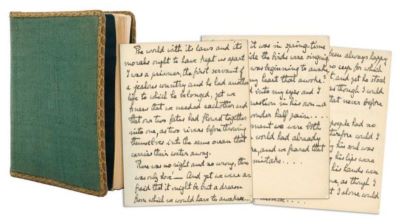 The world with its laws and its
morals ought to have kept us apart
I was a princess, the first servant of
a jealous country and he had another
life to which he belonged, yet we
knew that we needed each other and
that our two fates had flowed together
into one, as two rivers before throwing
themselves into the same ocean that
carries their waters away.
There was no right and no wrong, there
was only love — And yet we were a-
fraid that it might be but a dream
from which we would have to awaken...
it was in spring-time
the birds were singing
beginning to
my heart that awoke
into my eyes and I
question in his own and
under half pain....
moment we were both
world had already
and we feared that
mistake....
been always happy
for which
and yet he stood
as though I
that never before
people had no
therefore could I
and was
his lips were
his hands were
me, as though I